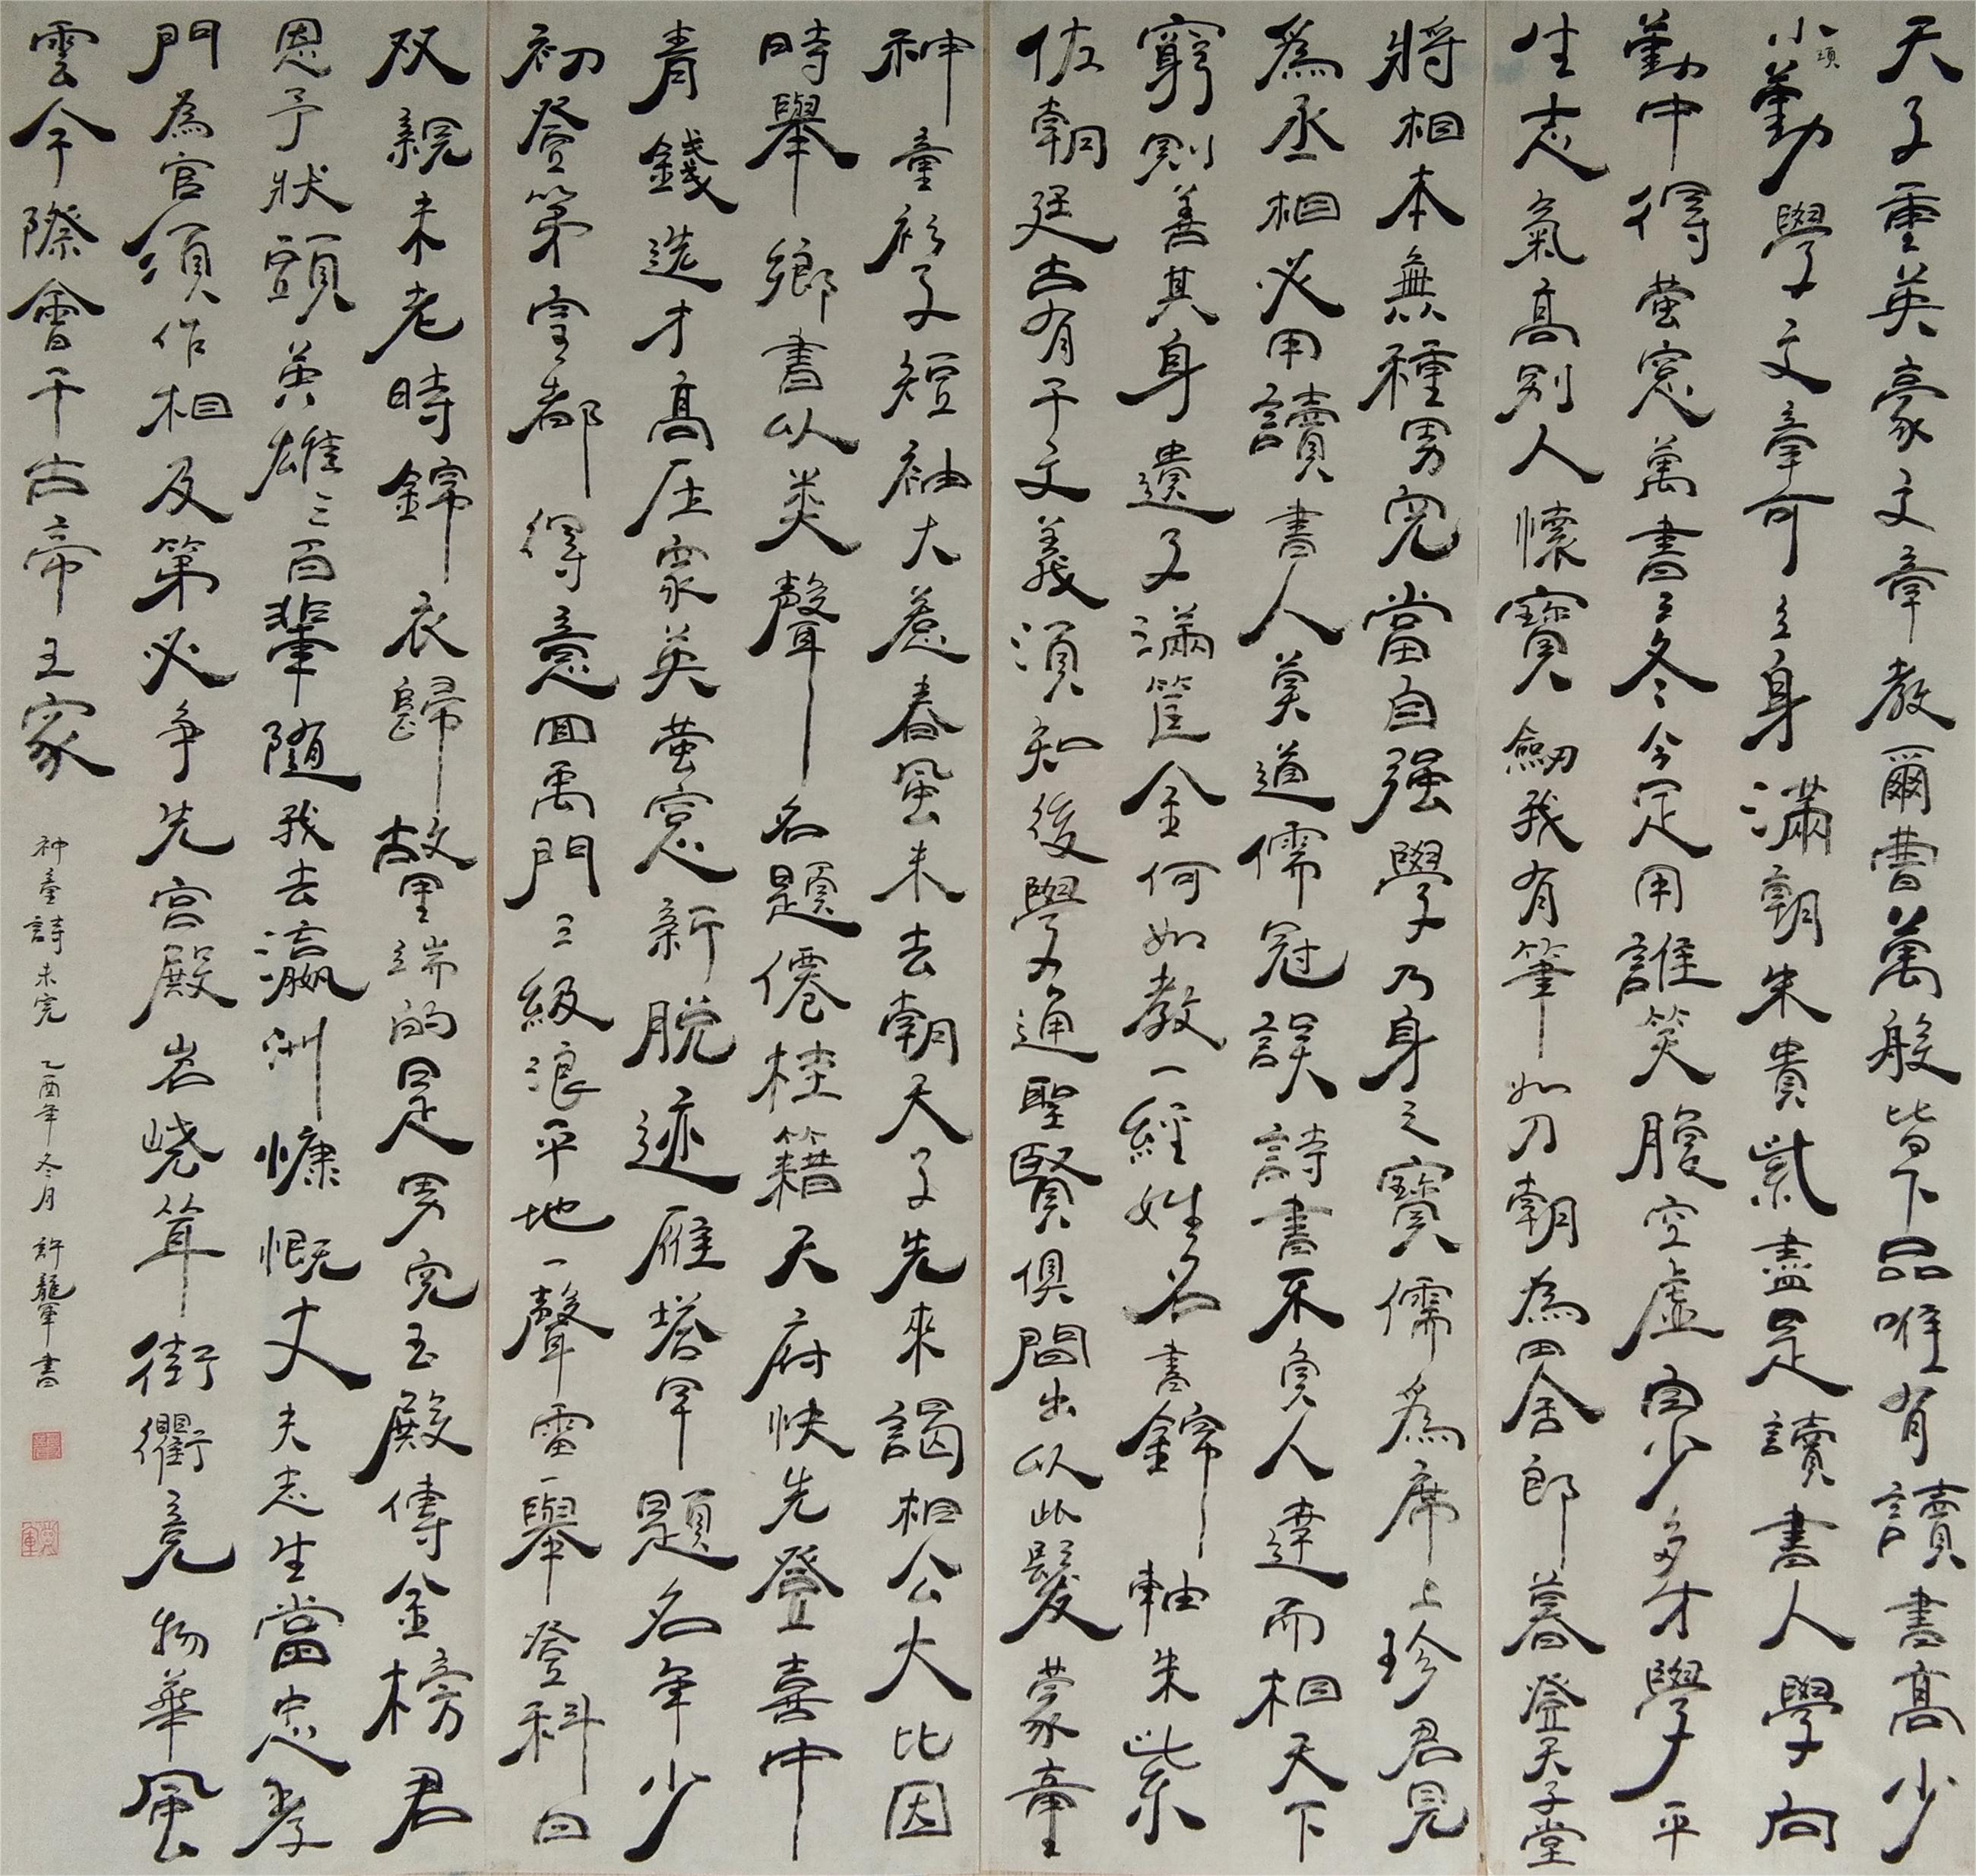 天子重英豪文章教爾曹萬般皆下品唯有讀書高少
小須勤學文章可立身滿朝朱貴紫盡是讀書人學向
勤中得萤窓萬書三冬今足用誰笑腹空虛自少多才學平
生志氣高別人懷寶劒我有筆如刀朝為田舍郎暮登天子堂
將相本無種男兒當自强學乃身之寶儒為席上珍君見
為丞相必用讀書人莫道儒冠誤詩書不負人達而相天下
窮則善其身遺子滿籯金何如教一經姓名書錦軸朱紫
佐朝廷古有千文義須知後學通聖賢俱間出以此發蒙童
神童衫子短袖大惹春風未去朝天子先來謁相公大比因
時舉鄉書以类聲名題僊桂籍天府快先登喜中
青錢选才高压眾英萤窓新脱迹雁塔早題名年少
初登第皇都得意回禹門三級浪平地一聲雷一舉登科日
双親未老時錦衣歸故里端的是男兒玉殿傳金榜君
恩予狀頭英雄三百輩随我去瀛洲慷慨丈夫志生當忠孝
門為官須作相及第必争先宫殿岩峣耸街衢竞物華風
雲今際會千古帝王家
神童詩未完 乙酉年冬月 許龍軍書